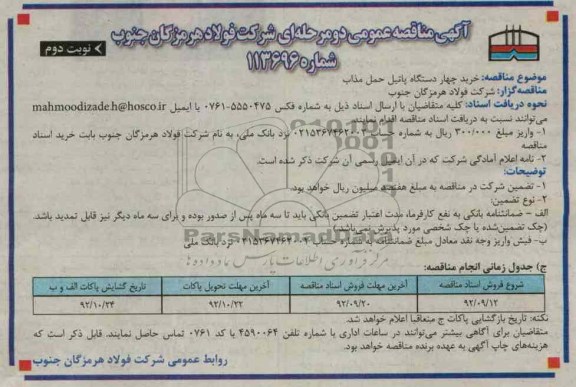 آگهی مناقصه عمومی دو مرحله‌ای شرکت فولاد هرمزگان جنوب
شماره ۱۱۳۶۹۶
نوبت دوم
موضوع مناقصه: خرید چهار دستگاه پاتیل حمل مذاب
مناقصه‌گزار: شرکت فولاد هرمزگان جنوب
نحوه دریافت اسناد: کلیه متقاضیان با ارسال اسناد ذیل به شماره فکس ۵۵۵۰۴۷۵-۰۷۶۱ یا ایمیل mahmoodizade.h@hosco.ir
می‌توانند نسبت به دریافت اسناد مناقصه اقدام نمایند.
۱- واریز مبلغ ۳۰۰/۰۰۰ ریال به شماره حساب نزد بانک ملی، به نام شرکت فولاد هرمزگان جنوب بابت خرید اسناد
مناقصه
۲- نامه اعلام آمادگی شرکت که در آن ایمیل رسمی آن شرکت ذکر شده است.
توضیحات:
۱- تضمین شرکت در مناقصه به مبلغ میلیون ریال خواهد بود.
۲- نوع تضمین:
الف - ضمانتنامه بانکی به نفع کارفرما، مدت اعتبار تضمین بانکی باید تا سه ماه پس از صدور بوده و برای سه ماه دیگر نیز قابل تمدید باشد.
(چک تضمین‌شده یا چک شخصی مورد پذیرش نمی‌باشد)
ب- فیش واریز وجه نقد معادل مبلغ ضمانتنامه به شماره حساب نزد بانک ملی
ParsNamadData
مرکز فرآوری اطلاعات پارس نماد داده‌ها
ج) جدول زمانی انجام مناقصه:
شروع فروش اسناد مناقصه آخرین مهلت فروش اسناد مناقصه آخرین مهلت تحویل پاکات تاریخ گشایش پاکات الف و ب
۹۲/۰۹/۱۲ ۹۲/۰۹/۲۰ ۹۲/۱۰/۲۲ ۹۲/۱۰/۲۴
نکته: تاریخ بازگشایی پاکات ج متعاقبا اعلام خواهد شد.
متقاضیان برای آگاهی بیشتر می‌توانند در ساعات اداری با شماره تلفن ۴۵۹۰۰۶۴ با کد ۰۷۶۱ تماس حاصل نمایند. قابل ذکر است که
هزینه‌های چاپ آگهی به عهده برنده مناقصه خواهد بود.
روابط عمومی شرکت فولاد هرمزگان جنوب